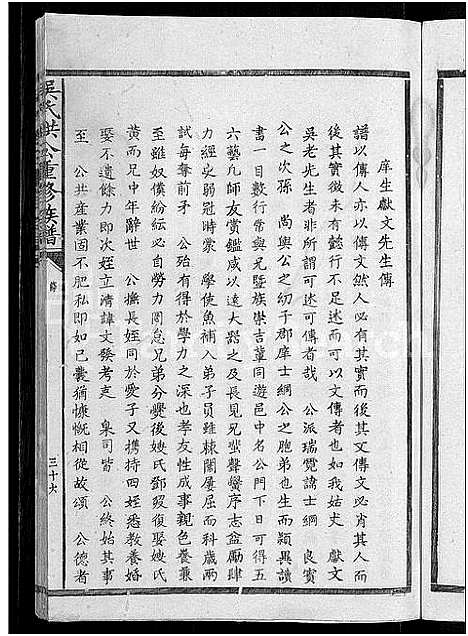 庠生獻文先生傳
譜以傳人亦以傳文然人必有其實而後其文傳文必肖其人而
後其實徵未有懿行不足述而可以文傳者也如我姑丈 獻文
吳老先生者非所謂可述可傳者哉 公派瑞霓諱士綱 良實
公之次孫 尚與公之幼子郡庠士綱公之胞弟也生而穎異讀
書一目數行常與兄暨族崇吉輩同遊邑中名公門下日可得五
六藝凡師友賞鑑咸以遠大器之及長見兄蜚聲黌序志益勵肆
力經史弱冠時蒙 學使魚補入弟子員雖棘闈屢屈而科歲兩
試每奪前矛 公殆有得於學力之深也孝友性成事親色養兼
至雖奴僕紛紜必自勞力罔怠兄弟分爨後嫂氏鄧歿復娶嫂氏
黃而兄中年辭世 公撫長姪同於愛子又携持四姪悉教養婚
娶不遺餘力即次姪立清諱文發考吏 臬司皆 公終始其事
至 公共產業固不肥私即如己囊猶慷慨相從故頌 公德者
吳氏洪公重修族譜
傳
三十六